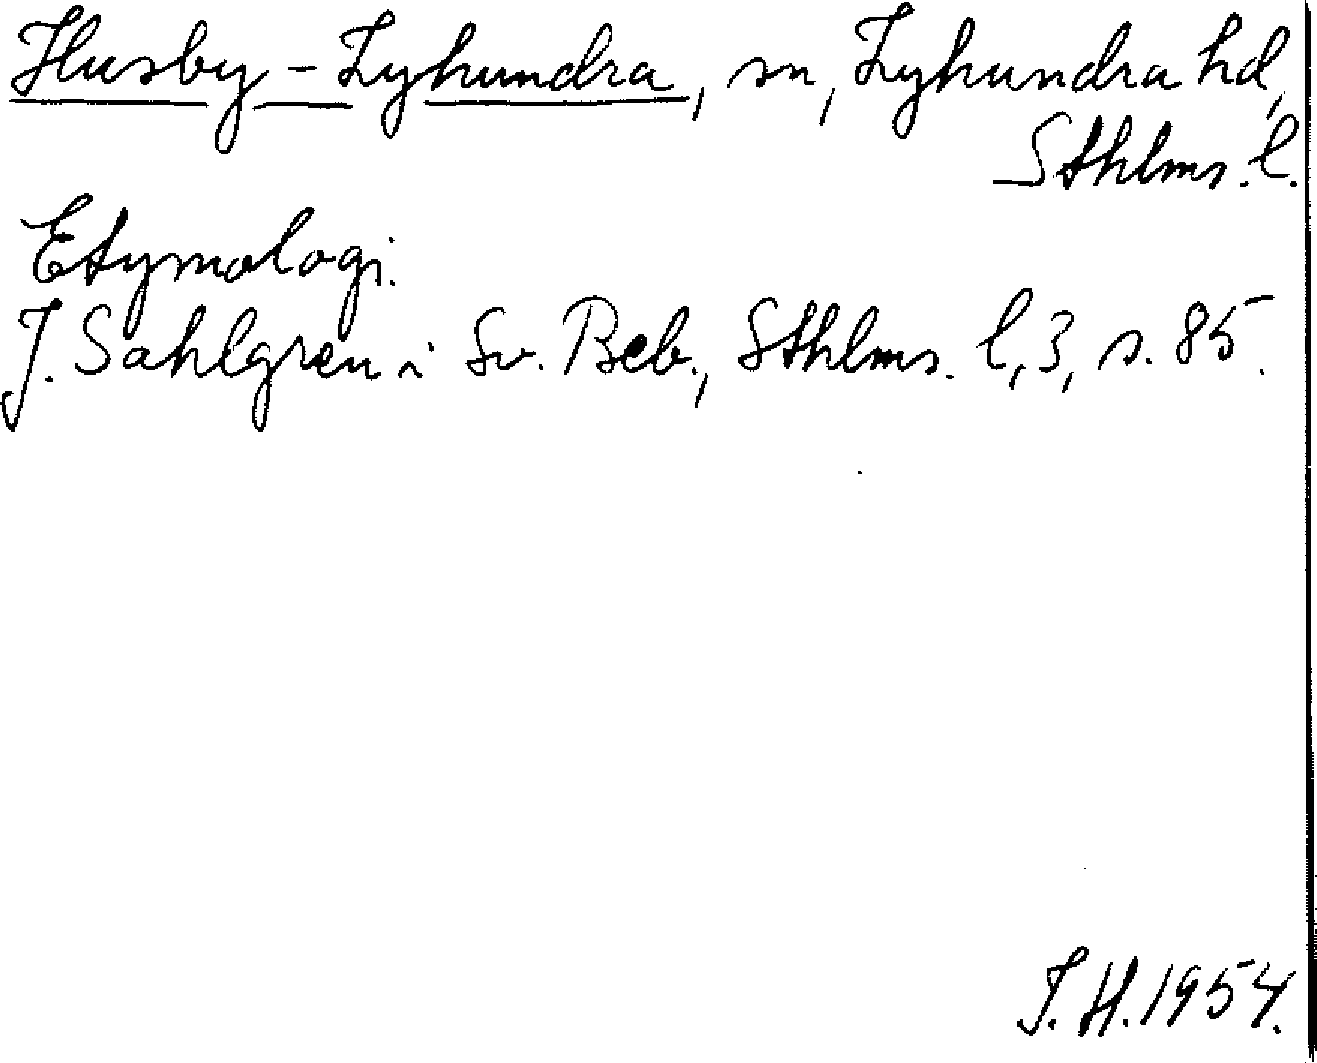 Husby-Lyhundra, sn, Lyhundra hd,
Sthlms. l.
Etymologi.
J. Sahlgren i Sv. Beb., Sthlms. l, 3, s. 85.
I. H. 1954.